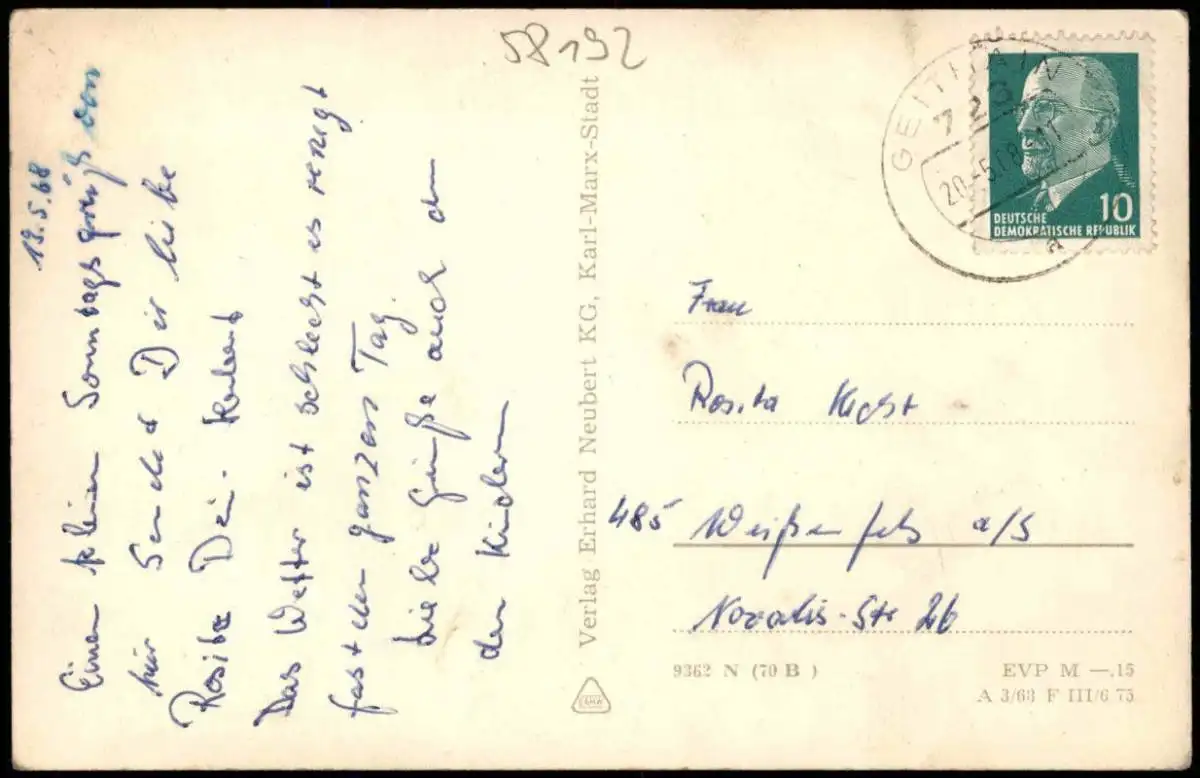 58192
19.5.68
Einen kleinen Sonntagsgruß von
hier sendet Dir liebe
Rosita Dein
Das Wetter ist schlecht es regnet
fast den ganzen Tag.
Liebe Grüße auch an
den Kindern
Verlag Erhard Neubert KG, Karl-Marx-Stadt
GEITHAIN
723
20.-5.68
a
10
DEUTSCHE
DEMOKRATISCHE REPUBLIK
Frau
Rosita
485 Weißenfels a/S
Novalis-Str 26
9362 N (70 B )
EVP M —.15
A 3/68 F III/6 75